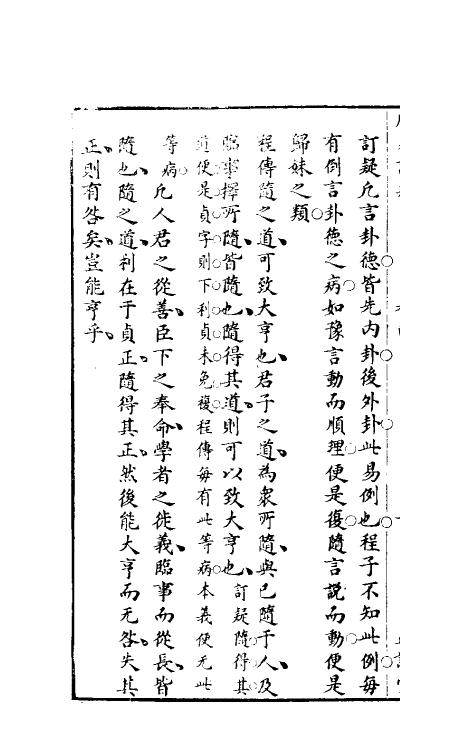 訂疑凡言卦德皆先内卦後外卦此易例也程子不知此例每
有倒言卦德之病如豫言動而順理便是復隨言説而動便是
歸妹之類
程傳隨之道可致大亨也君子之道為衆所隨與己隨于人及
臨事擇所隨皆隨也隨得其道則可以致大亨也訂疑隨得其
道便是貞字則下利貞未免複程傳每有此等病本義便无此
等病凡人君之從善臣下之奉命學者之徙義臨事而從長皆
隨也隨之道利在于貞正隨得其正然後能大亨而无咎失其
正則有咎矣豈能亨乎